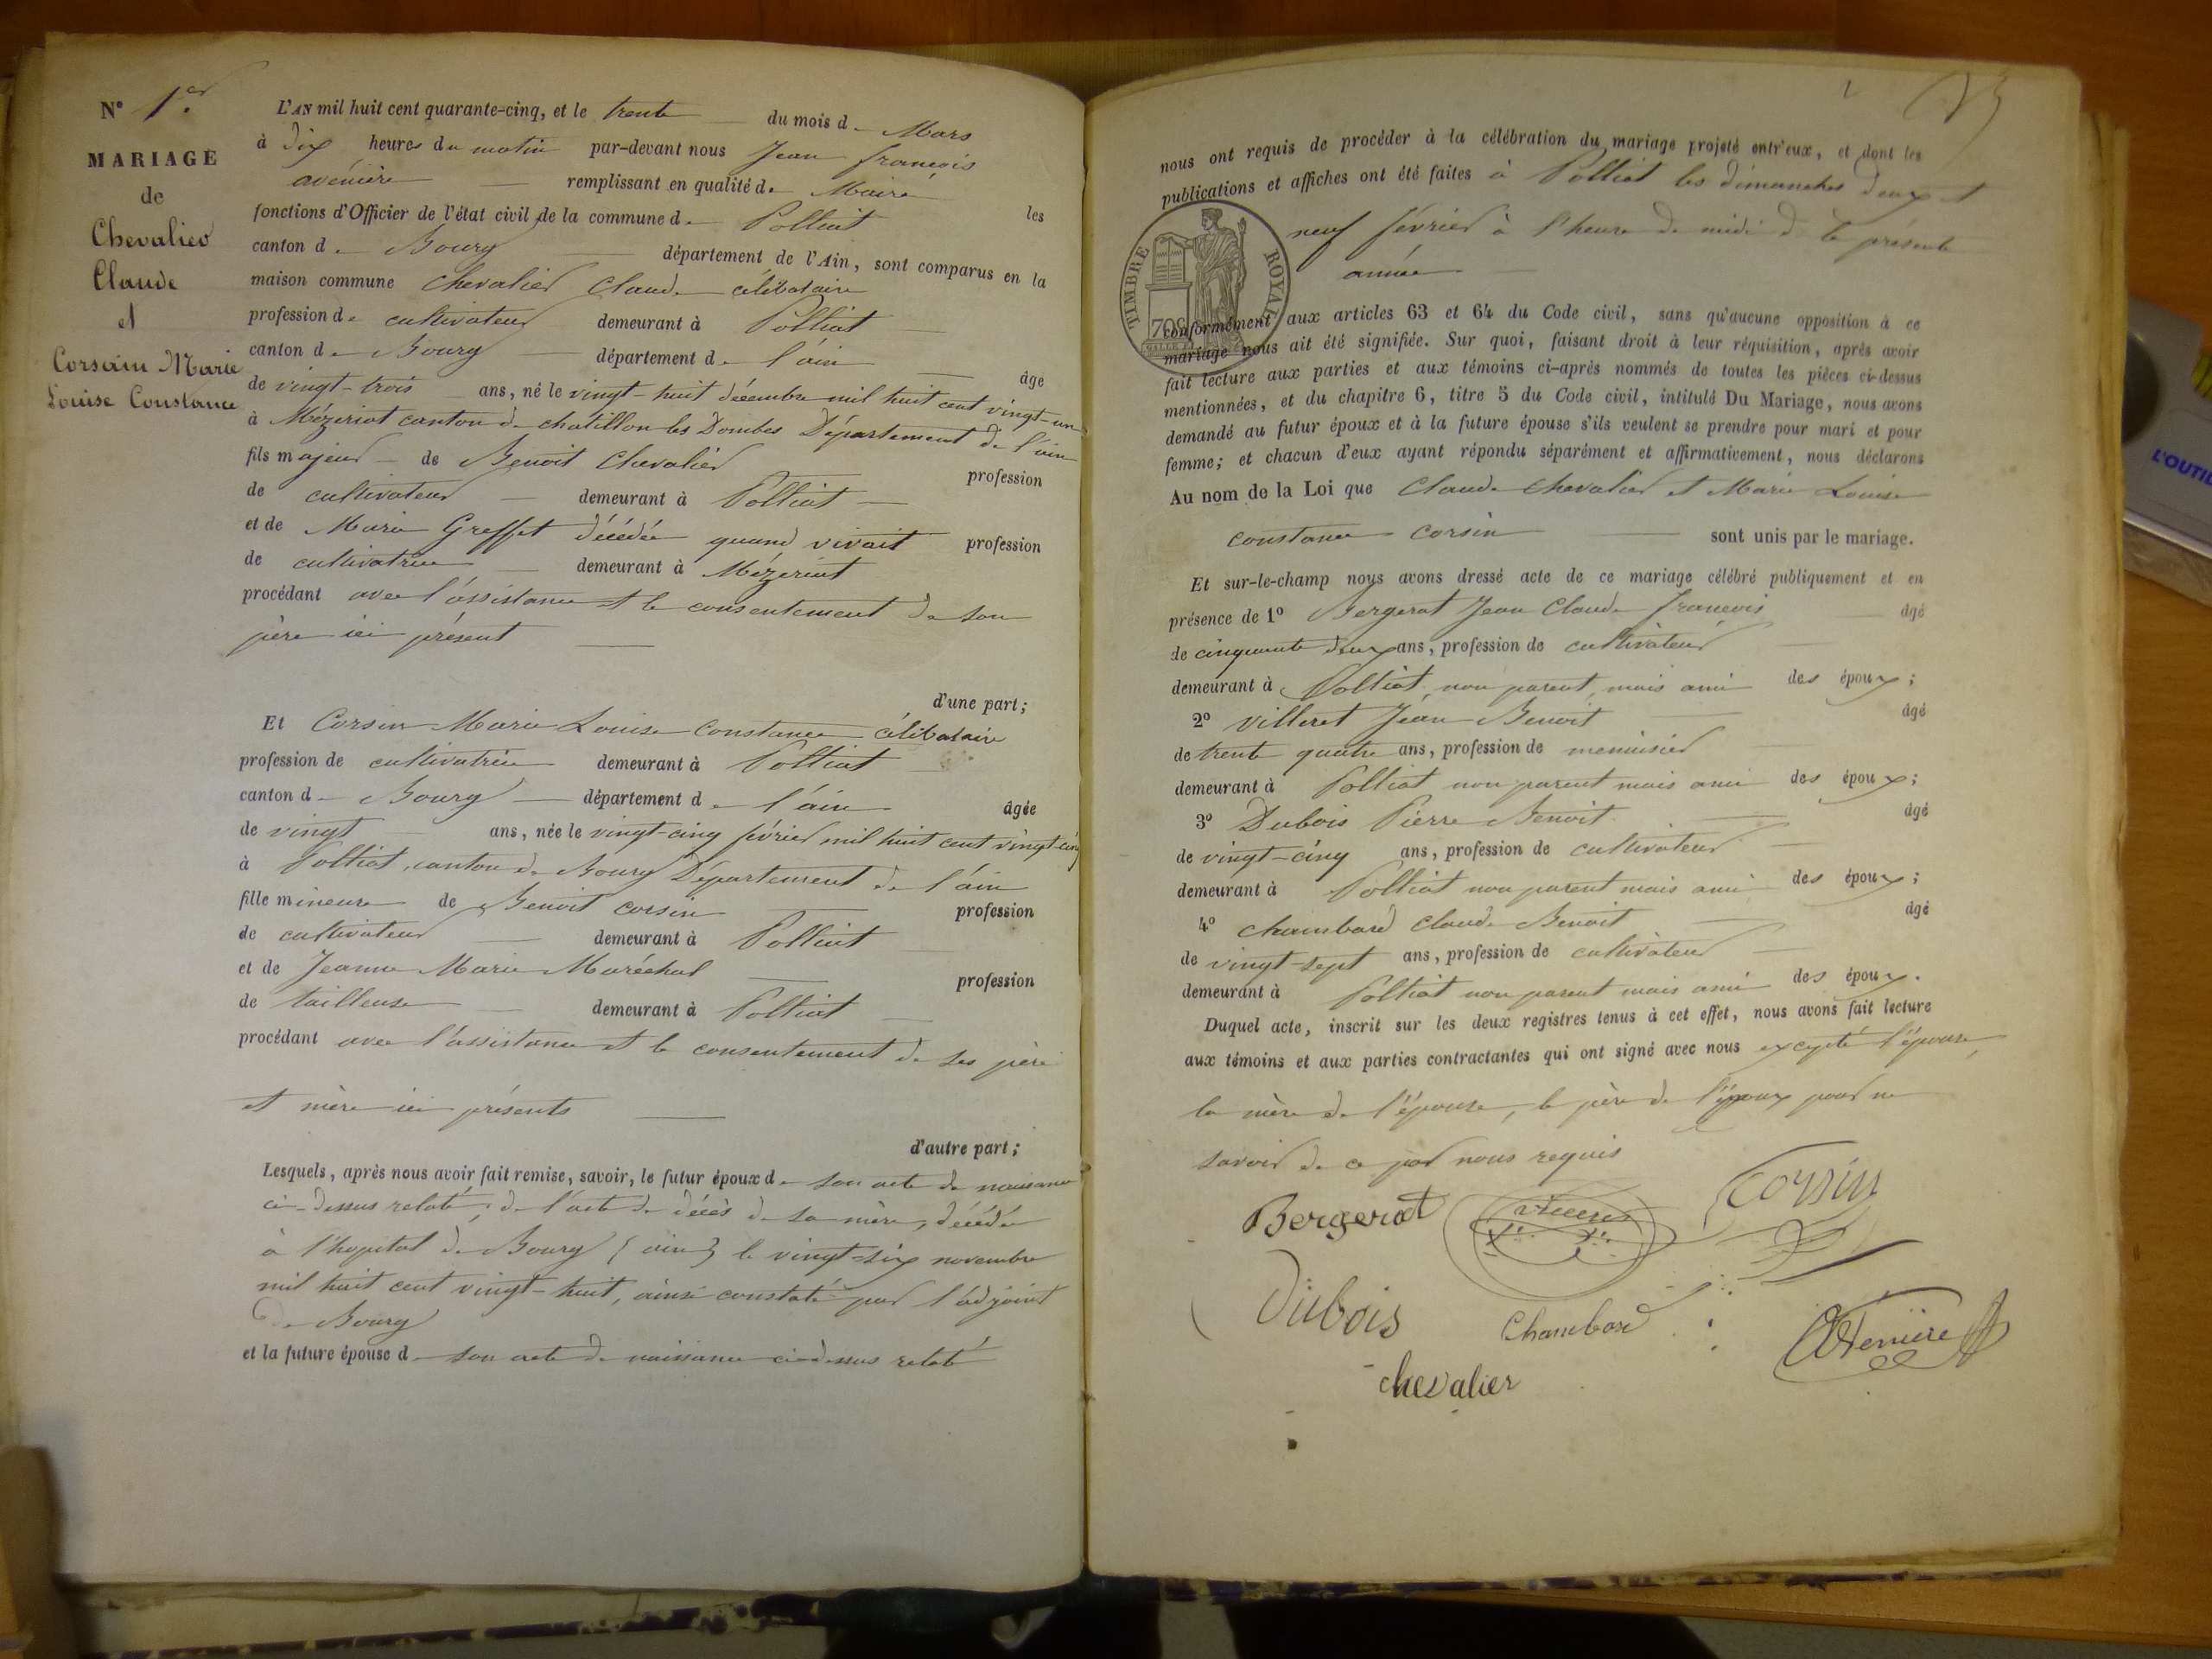 N° 1er
MARIAGE
de
Chevalier
Claude
et
Corsain Marie
Louise Constance
L'AN mil huit cent quarante-cinq, et le trente du mois de Mars
à dix heures du matin par-devant nous Jean françois
avenière remplissant en qualité de Maire les
fonctions d'Officier de l'état civil de la commune de Polliat
canton de Bourg département de l'Ain, sont comparus en la
maison commune Chevalier Claude célibataire
profession de cultivateur demeurant à Polliat
canton de Bourg département de l'ain âgé
de vingt-trois ans, né le vingt-huit décembre mil huit cent vingt-un
à Mézeriat canton de chatillon les Dombes Département de l'ain
fils majeur de Benoit Chevalier profession
de cultivateur demeurant à Polliat
et de Marie Greffet décédée quand vivait profession
de cultivatrice demeurant à Mézériat
procédant avec l'assistance et le consentement de son
père ici présent
d'une part;
Et Corsin Marie Louise Constance célibataire
profession de cultivatrice demeurant à Polliat
canton de Bourg département de l'ain âgée
de vingt ans, née le vingt-cinq février mil huit cent vingt-cinq
à Polliat, canton de Bourg Département de l'ain
fille mineure de Benoit corsin profession
de cultivateur demeurant à Polliat
et de Jeanne Marie Maréchal profession
de tailleuse demeurant à Polliat
procédant avec l'assistance et le consentement de ses père
et mère ici présents
d'autre part;
Lesquels, après nous avoir fait remise, savoir, le futur époux de son acte de naissance
ci-dessus relaté, de l'acte de décès de sa mère, décédée
à l'hopital de Bourg (ain) le vingt-six novembre
mil huit cent vingt-huit, ainsi constaté par l'adjoint
de Bourg
et la future épouse de son acte de naissance ci-dessus relaté
nous ont requis de procéder à la célébration du mariage projeté entr'eux, et dont les
publications et affiches ont été faites à Polliat les dimanches deux et
neuf février à l'heure de midi de la présente
année
TIMBRE ROYAL
70c
conformément aux articles 63 et 64 du Code civil, sans qu'aucune opposition à ce
mariage nous ait été signifiée. Sur quoi, faisant droit à leur réquisition, après avoir
fait lecture aux parties et aux témoins ci-après nommés de toutes les pièces ci-dessus
mentionnées, et du chapitre 6, titre 5 du Code civil, intitulé Du Mariage, nous avons
demandé au futur époux et à la future épouse s'ils veulent se prendre pour mari et pour
femme; et chacun d'eux ayant répondu séparément et affirmativement, nous déclarons
Au nom de la Loi que Claude Chevalier et Marie Louise
constance corsin sont unis par le mariage.
Et sur-le-champ nous avons dressé acte de ce mariage célébré publiquement et en
présence de 1° Bergerat Jean Claude françois âgé
de cinquante deux ans, profession de cultivateur
demeurant à Polliat, non parent, mais ami des époux;
2° villeret Jean Benoit âgé
de trente quatre ans, profession de menuisier
demeurant à Polliat non parent mais ami des époux;
3° Dubois Pierre Benoit âgé
de vingt-cinq ans, profession de cultivateur
demeurant à Polliat non parent mais ami des époux;
4° chambard claude Benoit âgé
de vingt-sept ans, profession de cultivateur
demeurant à Polliat non parent mais ami des époux.
Duquel acte, inscrit sur les deux registres tenus à cet effet, nous avons fait lecture
aux témoins et aux parties contractantes qui ont signé avec nous excepté l'épouse,
la mère de l'épouse, le père de l'époux pour ne
savoir de ce par nous requis
Bergerat Corsin
Dubois Chambard Avenière
chevalier
L'OUTIL